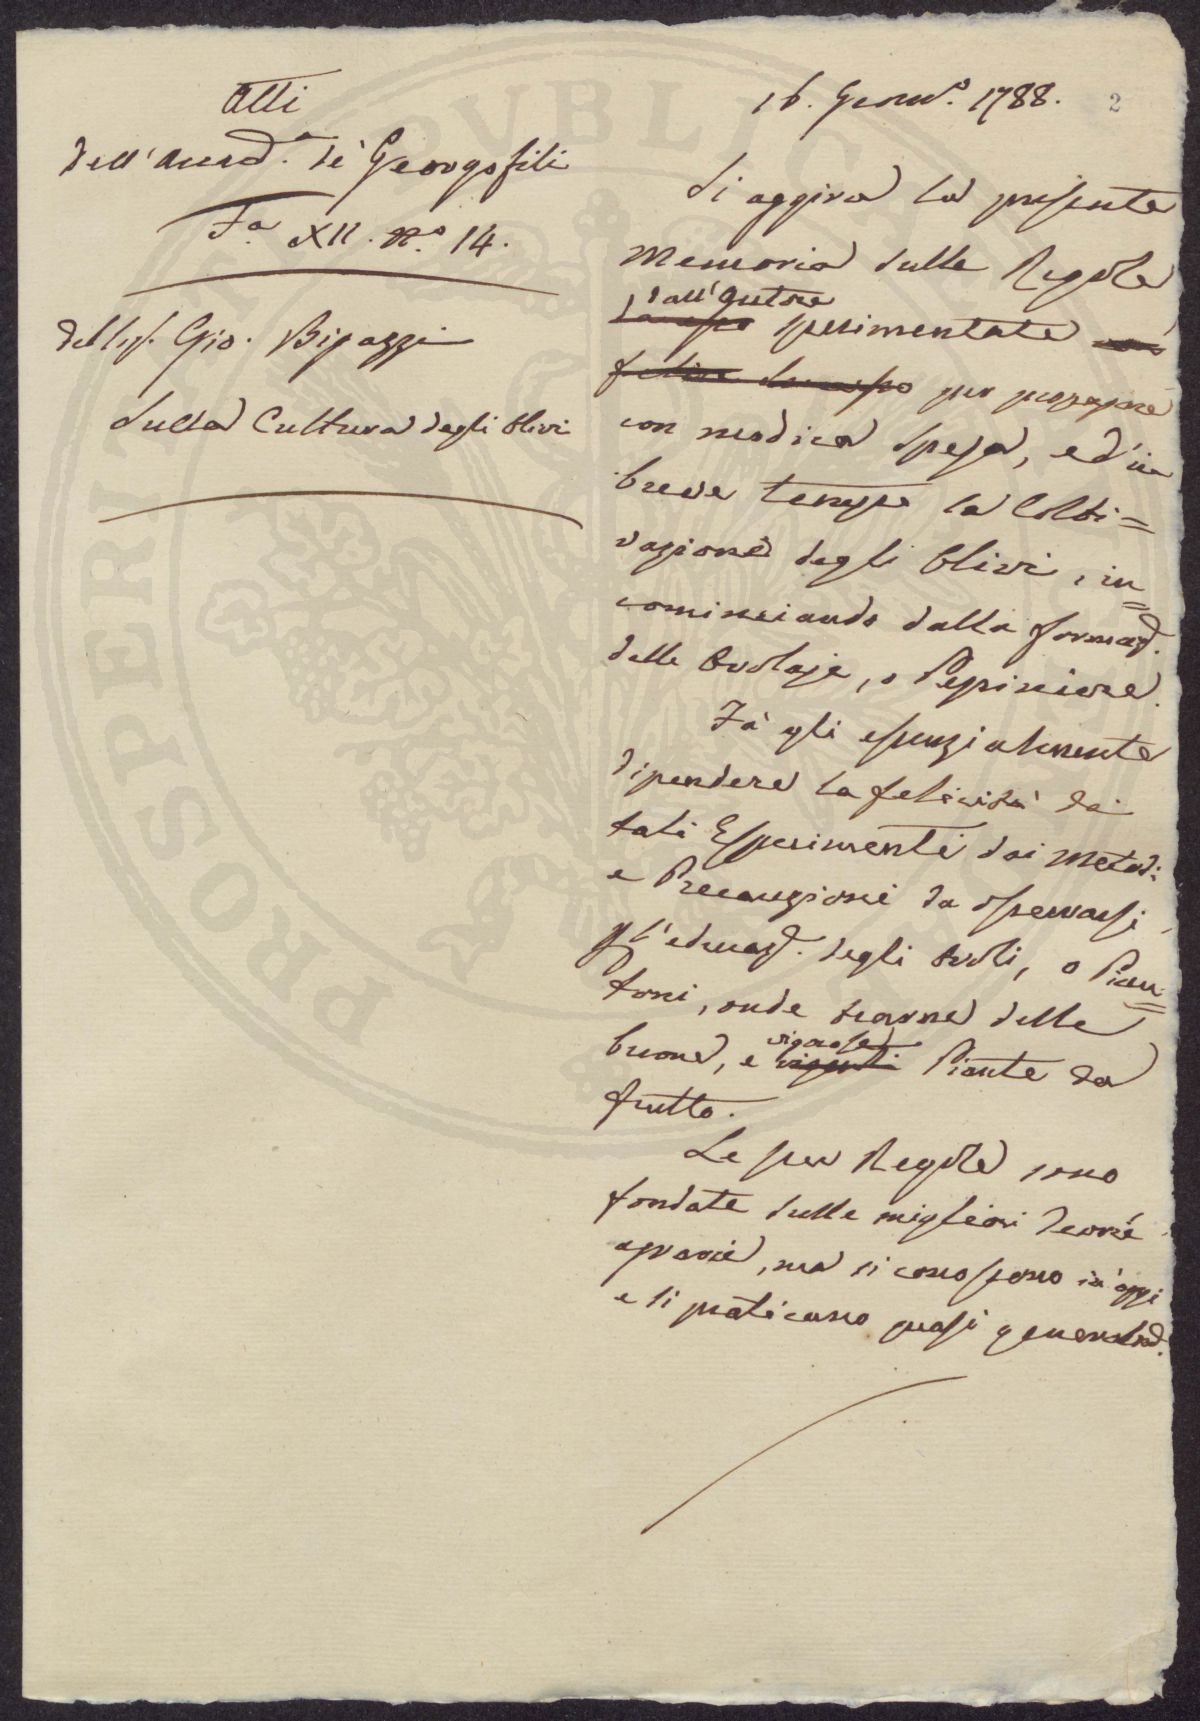 Atti
dell'Accad.a de' Georgofili
Fa. XII. N.o 14.
del Sig. Gio. Bigazzi
Sulla Cultura degli Olivi
16. Genn.o 1788.
2
Si aggira la presente
Memoria sulle Regole
dall'Autore
da esso sperimentate
felice da esso per propagare
con modica spesa, ed in
breve tempo la Colti=
vazione degli Olivi, in=
cominciando dalla formaz.
delle Ovolaje, o Pepiniere.
Fà gli essenzialmente
dipendere la felicità dei
tali Esperimenti dai Metodi
e Precauzioni da osservarsi
p l'educaz. degli Ovoli, o Pian=
toni, onde trarne delle
vigorose
buone, e vigenti Piante da
frutto.
Le sue Regole sono
fondate sulle migliori Teorie
agrarie, ma si conoscono in oggi
e si praticano quasi generalm.
PVBLICAE
PROSPERITATI